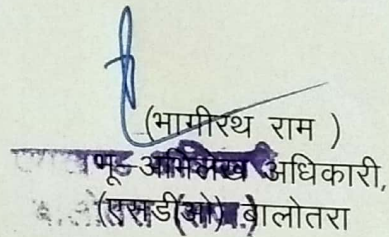 (भागीरथ राम )
भू-अभिलेख अधिकारी,
(एसडीओ) बालोतरा